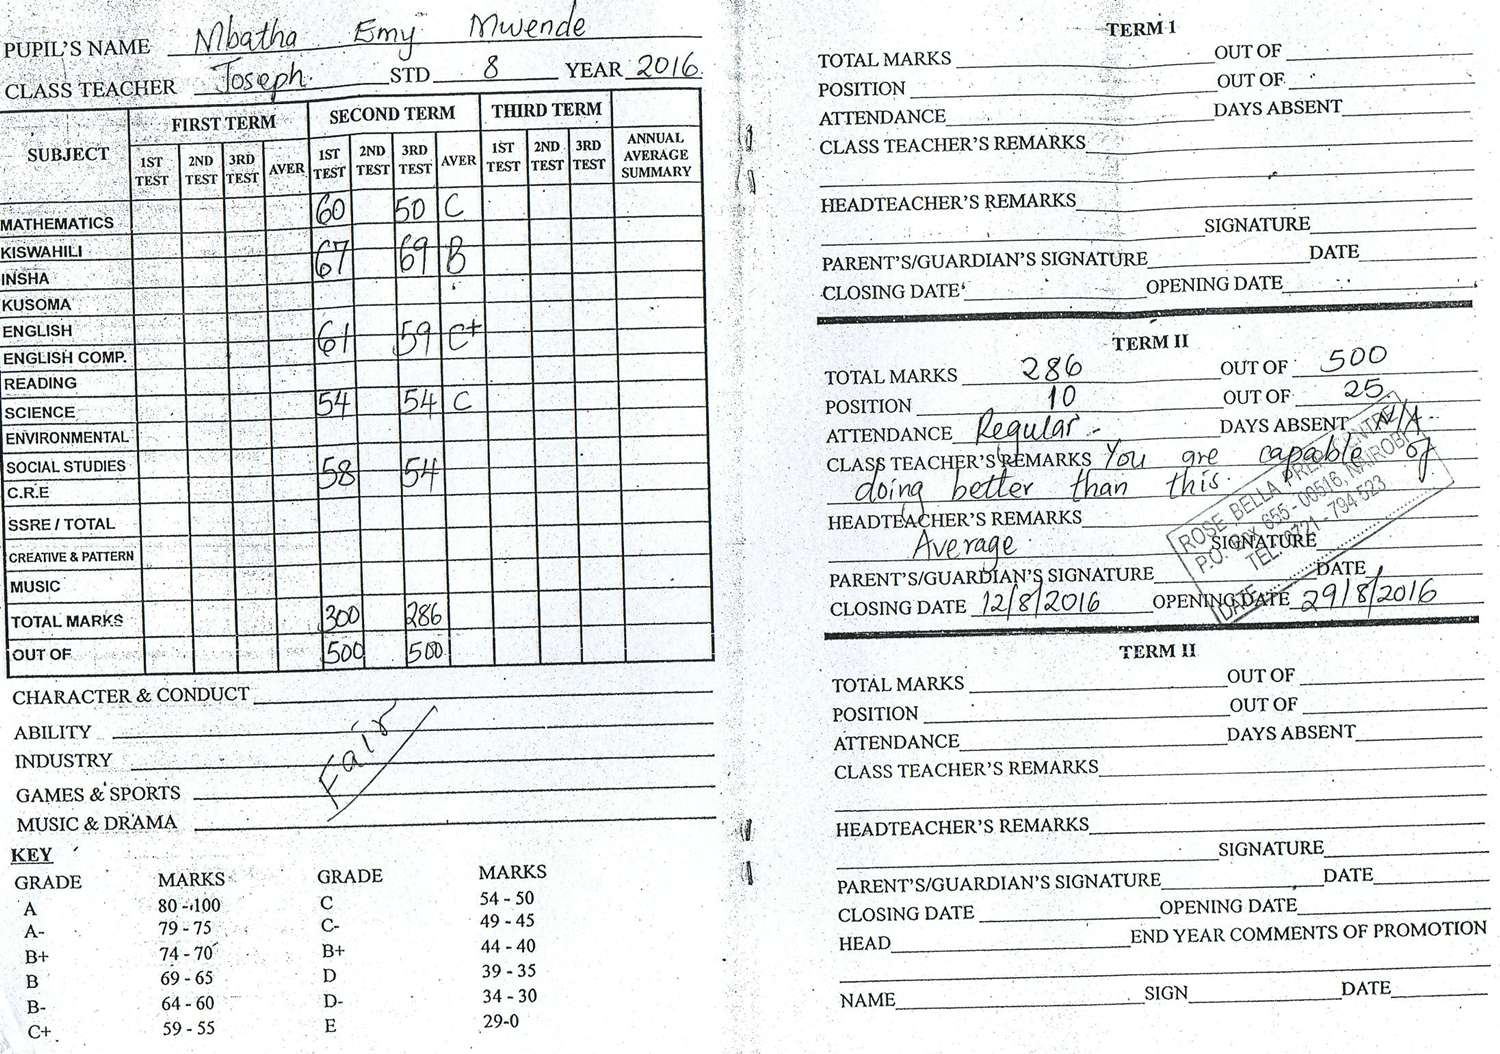 PUPIL'S NAME Mbatha Emy Mwende
CLASS TEACHER Joseph. STD 8 YEAR 2016.
SUBJECT FIRST TERM SECOND TERM THIRD TERM ANNUAL AVERAGE SUMMARY
1ST TEST 2ND TEST 3RD TEST AVER 1ST TEST 2ND TEST 3RD TEST AVER 1ST TEST 2ND TEST 3RD TEST
MATHEMATICS 60 50 C
KISWAHILI 67 69 B
INSHA
KUSOMA
ENGLISH 61 59 C+
ENGLISH COMP.
READING
SCIENCE 54 54 C
ENVIRONMENTAL
SOCIAL STUDIES 58 54
C.R.E
SSRE / TOTAL
CREATIVE & PATTERN
MUSIC
TOTAL MARKS 300 286
OUT OF 500 500
CHARACTER & CONDUCT
ABILITY
INDUSTRY
GAMES & SPORTS
MUSIC & DRAMA
Fair
KEY
GRADE MARKS GRADE MARKS
A 80 - 100 C 54 - 50
A- 79 - 75 C- 49 - 45
B+ 74 - 70 B+ 44 - 40
B 69 - 65 D 39 - 35
B- 64 - 60 D- 34 - 30
C+ 59 - 55 E 29-0
TERM I
TOTAL MARKS OUT OF
POSITION OUT OF
ATTENDANCE DAYS ABSENT
CLASS TEACHER'S REMARKS
HEADTEACHER'S REMARKS
SIGNATURE
PARENT'S/GUARDIAN'S SIGNATURE DATE
CLOSING DATE OPENING DATE
TERM II
TOTAL MARKS 286 OUT OF 500
POSITION 10 OUT OF 25
ATTENDANCE Regular DAYS ABSENT N/A
CLASS TEACHER'S REMARKS You are capable of
doing better than this.
HEADTEACHER'S REMARKS
Average SIGNATURE
PARENT'S/GUARDIAN'S SIGNATURE DATE
CLOSING DATE 12/8/2016 OPENING DATE 29/8/2016
ROSE BELLA PREP CENTRE
P.O. BOX 655 - 00516, NAIROBI
TEL: 0721 - 794 523
DATE
TERM II
TOTAL MARKS OUT OF
POSITION OUT OF
ATTENDANCE DAYS ABSENT
CLASS TEACHER'S REMARKS
HEADTEACHER'S REMARKS
SIGNATURE
PARENT'S/GUARDIAN'S SIGNATURE DATE
CLOSING DATE OPENING DATE
HEAD END YEAR COMMENTS OF PROMOTION
NAME SIGN DATE